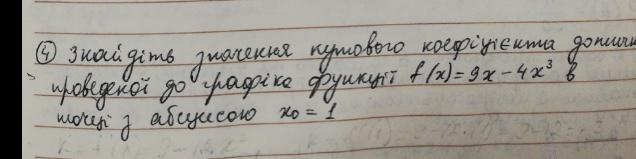 ④ Знайдіть значення кутового коефіцієнта дотичн
проведеної до графіка функції f(x)=9x-4x³ в
точці з абсцисою x₀=1